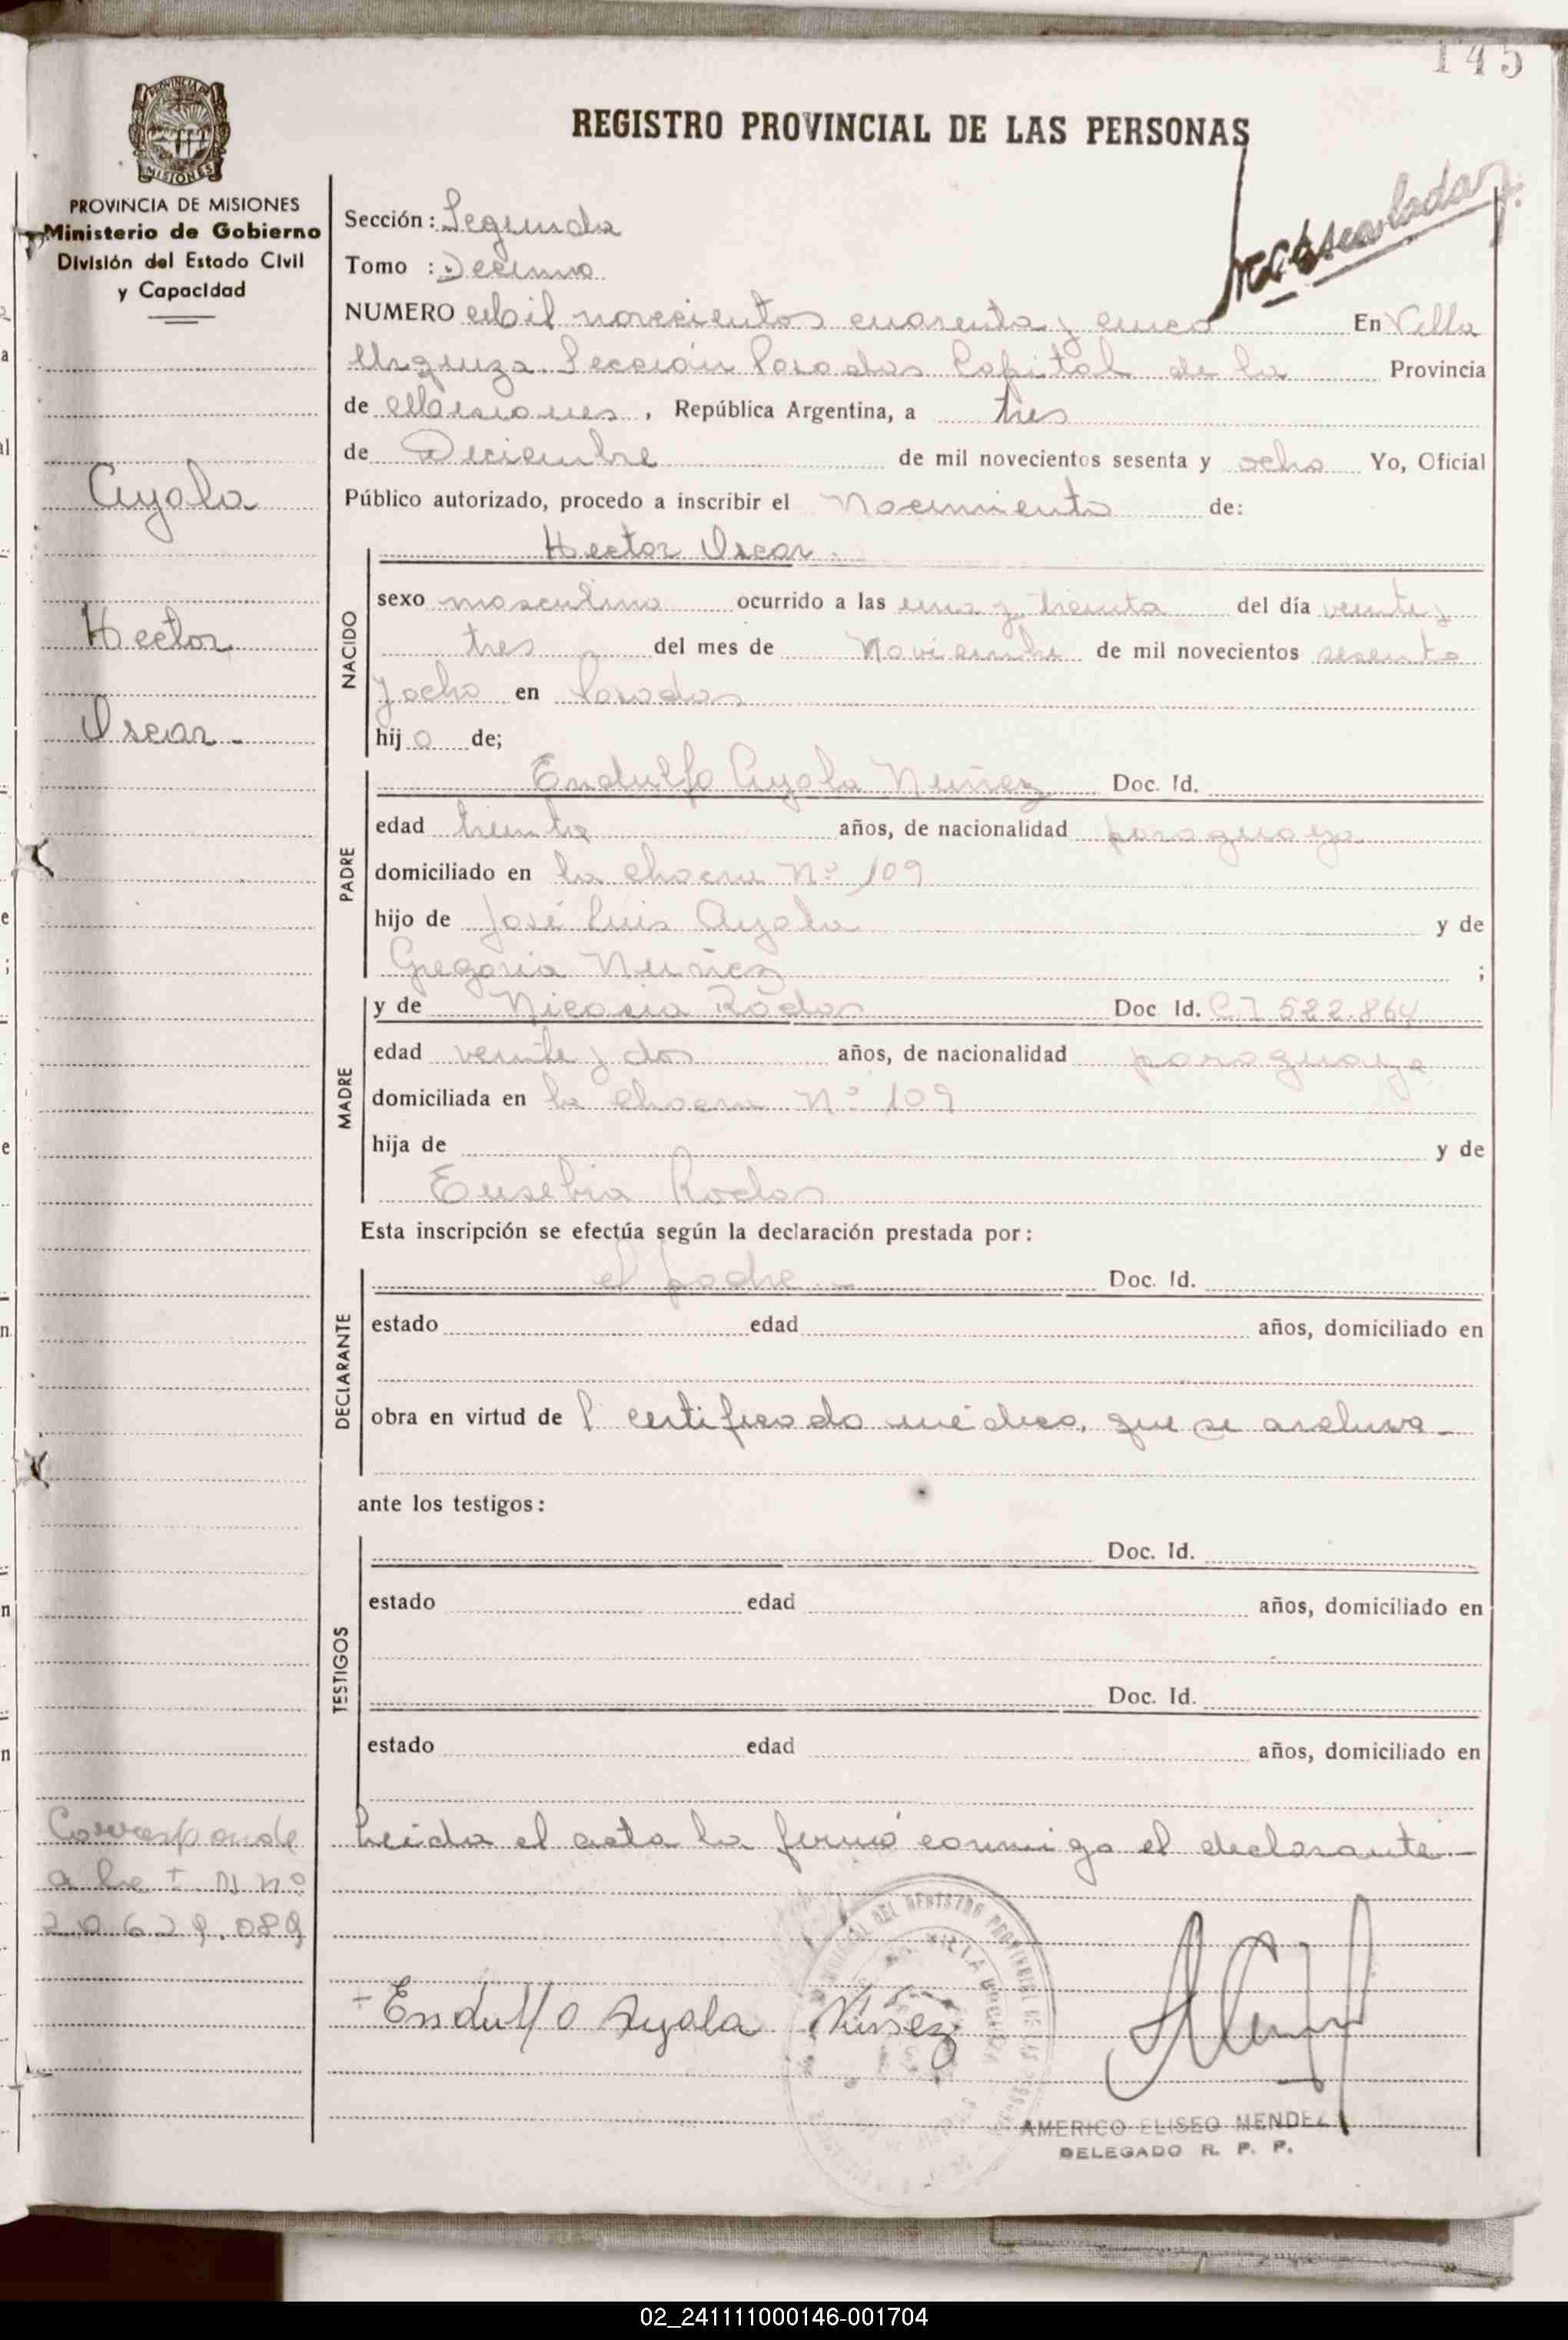 145
REGISTRO PROVINCIAL DE LAS PERSONAS
PROVINCIA DE MISIONES
Ministerio de Gobierno
División del Estado Civil
y Capacidad
Sección: Segunda
Tomo : Decimo
NUMERO Mil novecientos cuarenta y cinco En Villa
Urquiza Sección Posadas Capital de la Provincia
de Misiones, República Argentina, a tres
de Diciembre de mil novecientos sesenta y ocho Yo, Oficial
Público autorizado, procedo a inscribir el Nacimiento de:
Ayala
Hector
Oscar.-
Hector Oscar.
NACIDO
sexo masculino ocurrido a las una y treinta del día veinte y
tres del mes de Noviembre de mil novecientos sesenta
y ocho en Posadas
hijo de;
PADRE
Endulfo Ayala Nuñez Doc. Id.
edad treinta años, de nacionalidad paraguaya
domiciliado en la chacra Nº 109
hijo de José Luis Ayala y de
Gregoria Nuñez ;
MADRE
y de Nicasia Rodas Doc Id. C I 522.864
edad veinte y dos años, de nacionalidad paraguaya
domiciliada en la chacra Nº 109
hija de y de
Eusebia Rodas
Esta inscripción se efectúa según la declaración prestada por:
DECLARANTE
el padre.- Doc. Id.
estado edad años, domiciliado en
obra en virtud de l certificado médico, que se archiva-
ante los testigos:
TESTIGOS
Doc. Id.
estado edad años, domiciliado en
Doc. Id.
estado edad años, domiciliado en
Leida el acta la firmó conmigo el declarante.-
Corresponde
a la I. N nº
20.629.089
Endulfo Ayala Nuñez
AMERICO ELISEO MENDEZ
DELEGADO R. P. P.
02_241111000146-001704